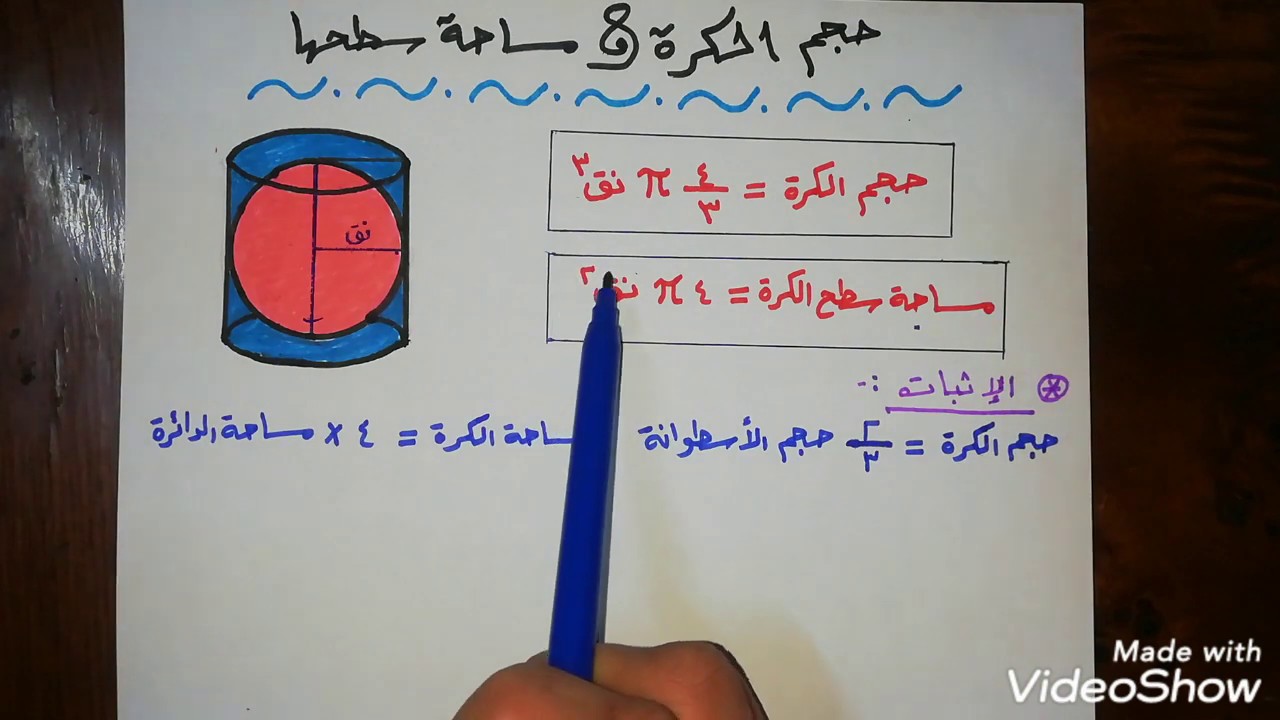 حجم الكرة و مساحة سطحها
حجم الكرة = ٤/٣ π نق^٣
نق
مساحة سطح الكرة = ٤ π نق^٢
* الإثبات :-
حجم الكرة = ٢/٣ حجم الأسطوانة
ساحة الكرة = ٤ × مساحة الدائرة
Made with
VideoShow